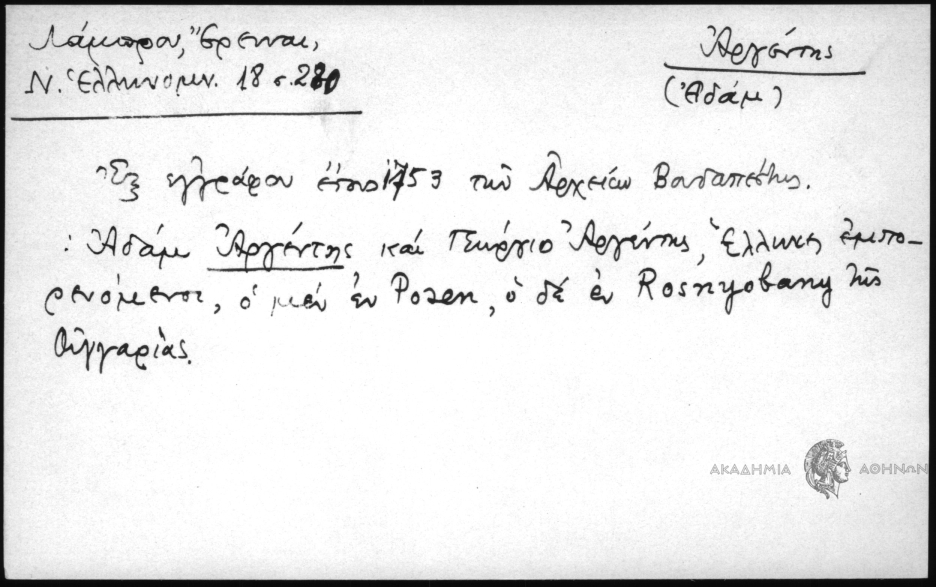 Λάμπρου, Ἔρευναι,
Ν. Ἑλληνομν. 18 σ. 280
Ἀργέντης
(Ἀδάμ)
Ἐξ ἐγγράφου ἔτους 1753 τῶν Ἀρχείων Βουδαπέστης.
: Ἀδάμ Ἀργέντης καί Γεώργιο Ἀργέντης, Ἕλληνες ἐμπο-
ρευόμενοι, ὁ μέν ἐν Posen, ὁ δέ ἐν Rosnyobany τῆς
Οὑγγαρίας.
ΑΚΑΔΗΜΙΑ ΑΘΗΝΩΝ